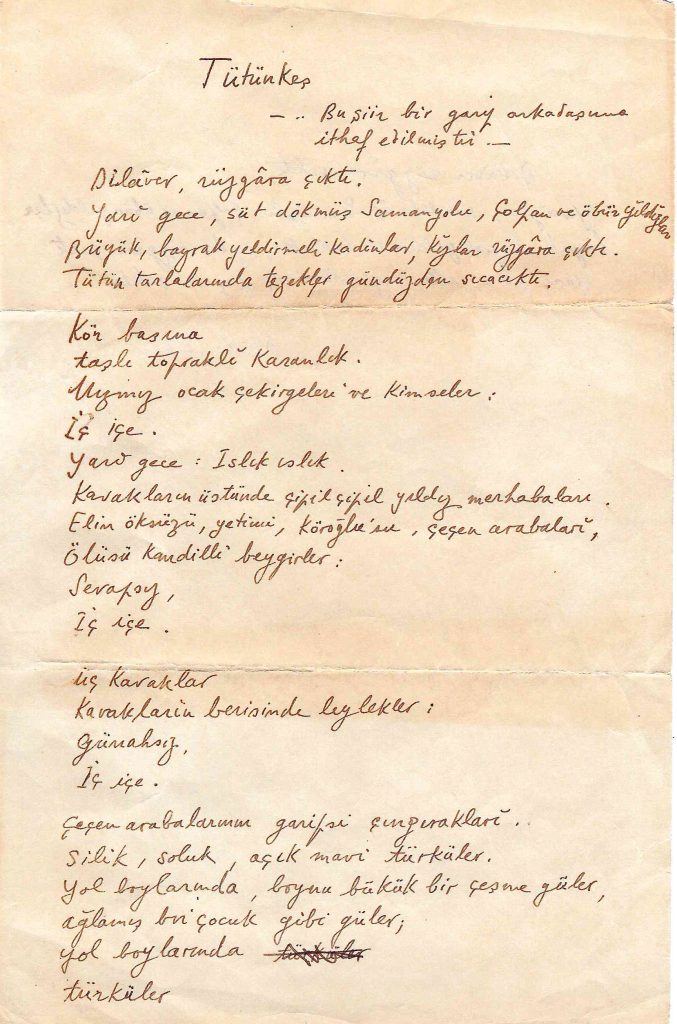 Tütünkeş
— .. Bu şiir bir garip arkadaşıma
ithaf edilmiştir —
Dilâver, rüzgâra çıktı.
Yarı gece, süt dökmüş Samanyolu, Çolpan ve öbür yıldızlar
Büyük, bayrak yeldirmeli kadınlar, kızlar rüzgâra çıktı.
Tütün tarlalarında tezekler gündüzden sıcacıktı.
Kör başına
taşlı topraklı karanlık.
Mızmız ocak çekirgeleri ve kimseler :
İç içe .
Yarı gece : Islık ıslık .
Kavakların üstünde çipil çipil yıldız merhabaları .
Elin öksüzü, yetimi, Köroğlu'su , çeçen arabaları,
Ölüsü kandilli beygirler :
Sevapsız,
İç içe .
üç kavaklar
Kavakların berisinde leylekler :
Günahsız,
İç içe .
Çeçen arabalarının garipsi çıngırakları ..
Silik, soluk, açık mavi türküler.
Yol boylarında, boynu bükük bir çeşme güler,
ağlamış bir çocuk gibi güler;
yol boylarında türküler
türküler